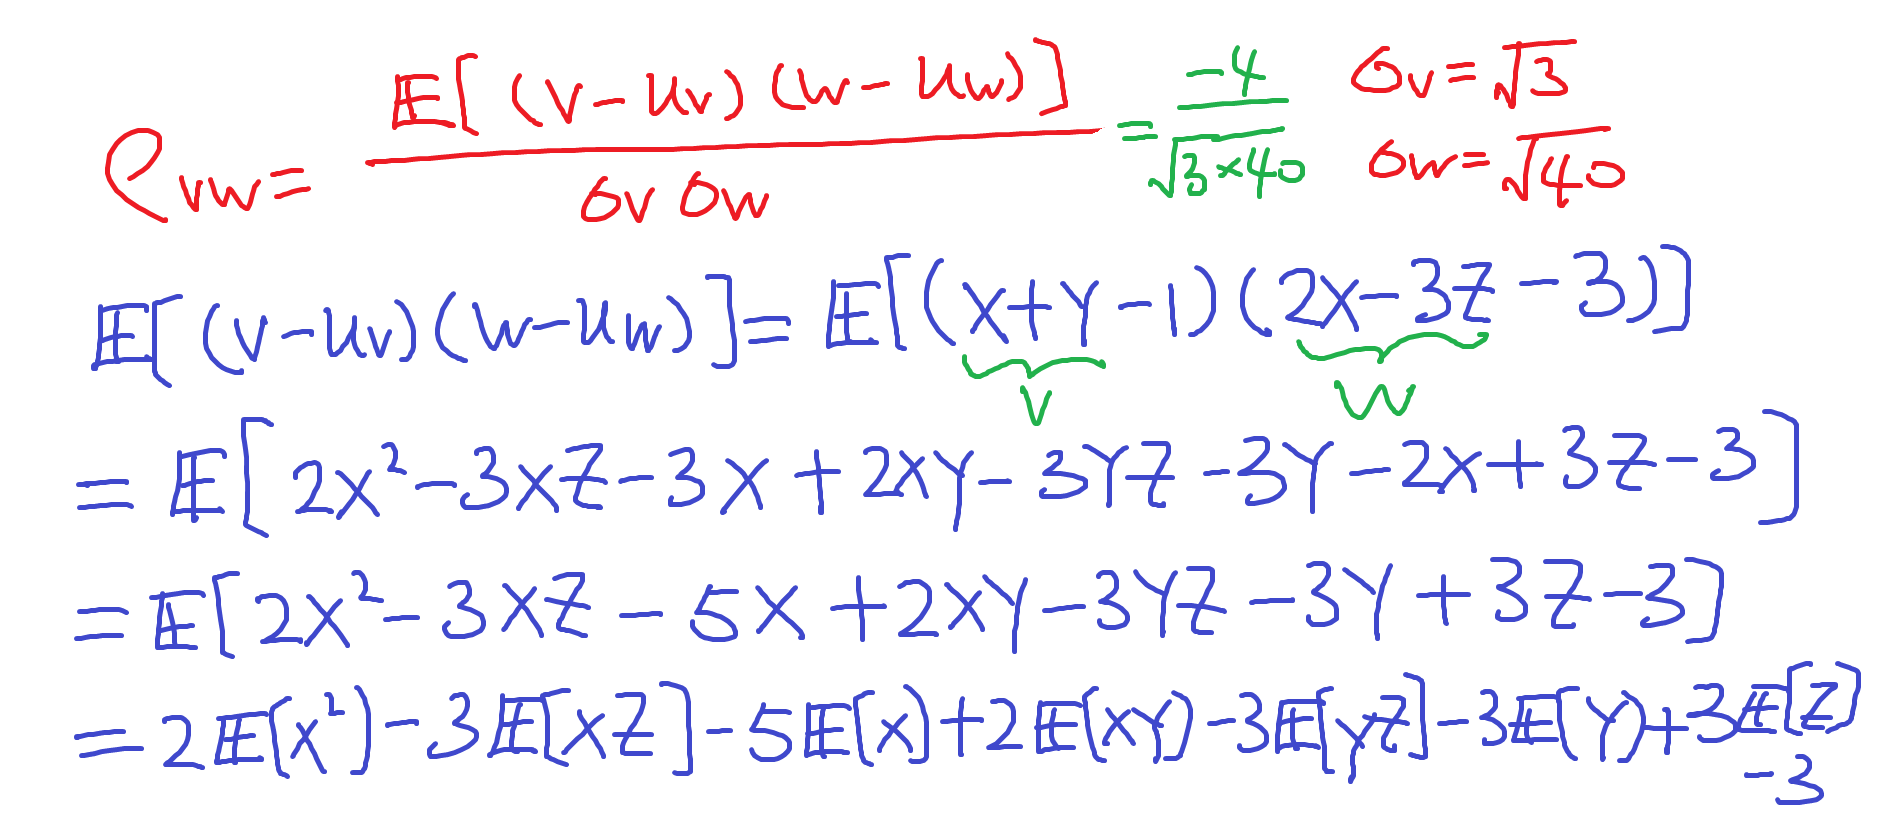 ρ_VW = E[(V-μ_V)(W-μ_W)] / σ_V σ_W = -4 / √(3×40)   σ_V = √3
σ_W = √40
E[(V-μ_V)(W-μ_W)] = E[(X+Y-1)(2X-3Z-3)]
V W
= E[2X² - 3XZ - 3X + 2XY - 3YZ - 3Y - 2X + 3Z - 3]
= E[2X² - 3XZ - 5X + 2XY - 3YZ - 3Y + 3Z - 3]
= 2E[X²] - 3E[XZ] - 5E[X] + 2E[XY] - 3E[YZ] - 3E[Y] + 3E[Z]
-3